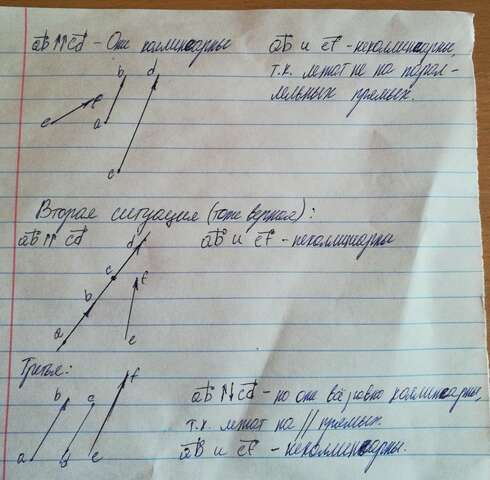 ab⃗ ⇈ cd⃗ – Они коллинеарны
ab⃗ и ef⃗ – неколлинеарны,
т.к. лежат не на парал-
лельных прямых.
b d
e f a
c
Вторая ситуация (тоже верная):
ab⃗ ⇈ cd⃗
ab⃗ и ef⃗ – неколлинеарны
d
c f
b
a e
Третья:
ab⃗ ↑↓ cd⃗ – но они всё равно коллинеарны,
т.к. лежат на // прямых.
ab⃗ и ef⃗ – неколлинеарны.
b c f
a e